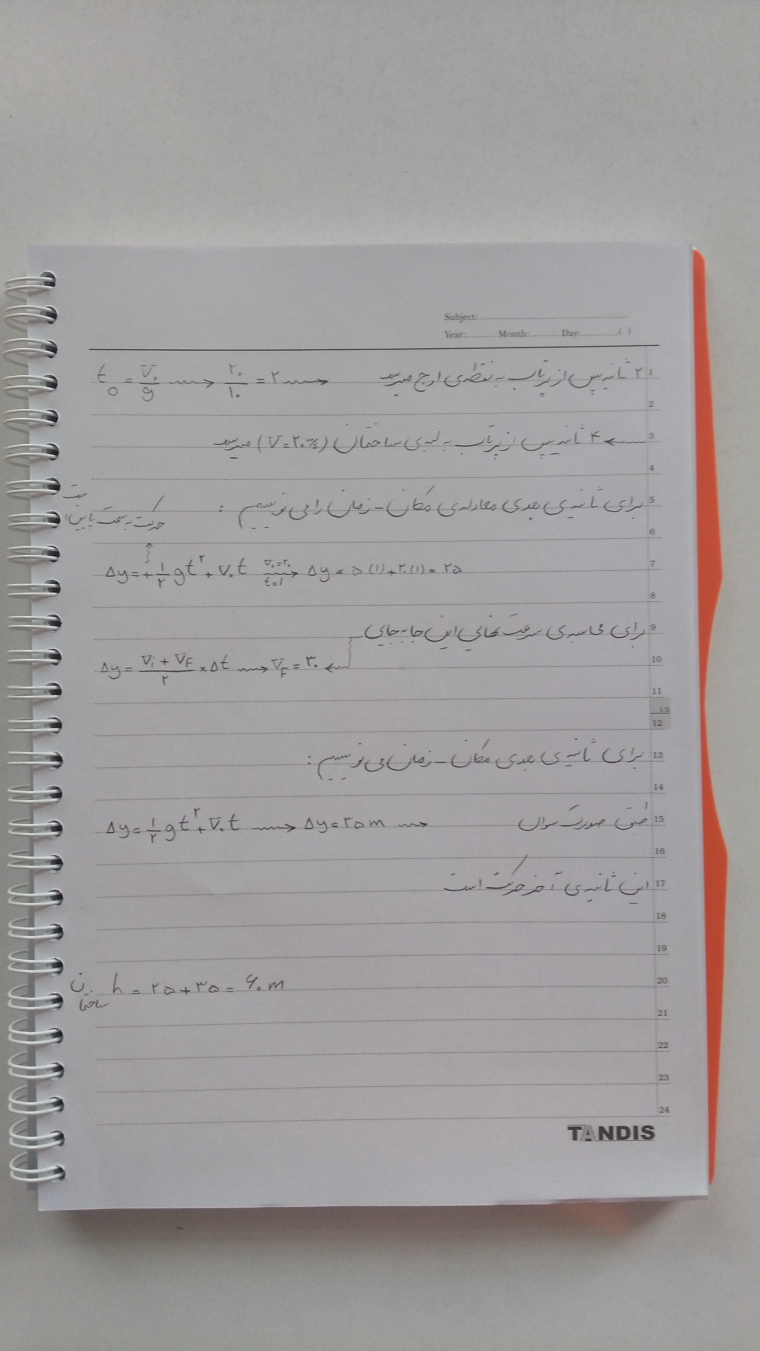 Subject:
Year: Month: Day: ( )
t₀ = V₀/g ⟿ ۲۰/۱۰ = ۲ ⟿ ۲ ثانیه پس از پرتاب به نقطه‌ی اوج میرسد
۴ ثانیه پس از پرتاب به لبه‌ی ساختمان (V=۲۰ m/s) میرسد
برای ثانیه‌ی بعدی معادله‌ی مکان - زمان را می نویسیم :
حرکت به سمت پایین است
Δy = +۱/۲ gt^۲ + V₀t (V₀=۲۰, t=۱) ⟶ Δy = ۵(۱)+۲۰(۱) = ۲۵
برای محاسبه‌ی سرعت نهایی این جابه‌جایی
Δy = (Vi + VF)/۲ × Δt ⟿ VF = ۳۰
برای ثانیه‌ی بعدی مکان - زمان می نویسیم :
Δy = ۱/۲ gt^۲ + V₀t ⟿ Δy = ۳۵m ⟿ طبق صورت سوال
این ثانیه‌ی آخر حرکت است
h ساختمان = ۲۵ + ۳۵ = ۶۰ m
1
2
3
4
5
6
7
8
9
10
11
1/2
12
13
14
15
16
17
18
19
20
21
22
23
24
TANDIS